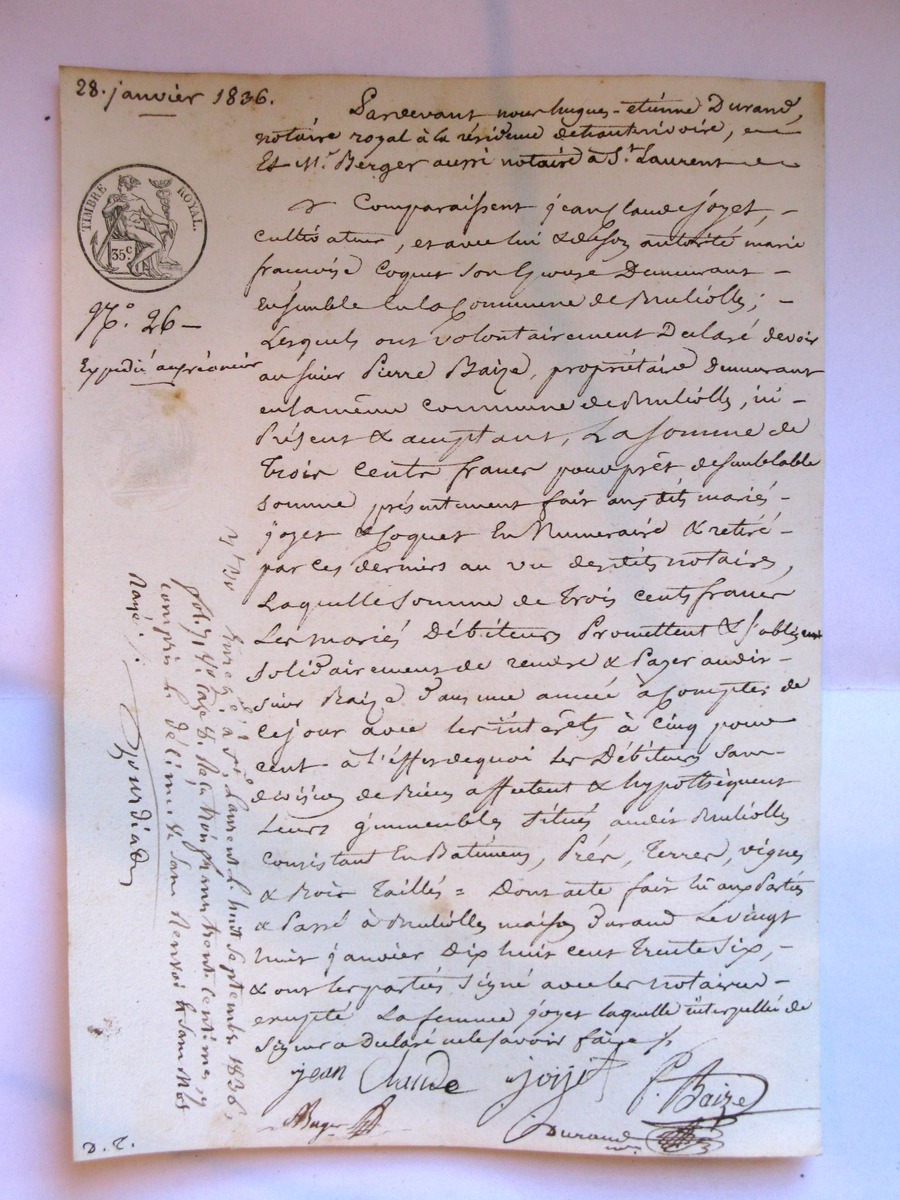 28. janvier 1836.
Pardevant nous hugues-etienne Durand,
notaire royal à la résidence de hauterivoire,
Et Mr. Berger aussi notaire à St. Laurent
TIMBRE ROYAL.
35 c.
Comparaissent jean Claude joyet,
cultivateur, et avec lui & de son autorité marie
françoise Coquet son Epouse Demeurant
Ensemble En la Commune de Brulioles ;
No. 26
Lesquels ont volontairement Déclaré devoir
Expedié au créancier
au sieur Pierre Baize, propriétaire demeurant
en la même Commune de Brulioles, ici
Présent & acceptant, La Somme de
Trois Cents francs pour prêt de semblable
somme présentement fait aux dits mariés
joyet & Coquet En Numeraire & retiré
par ces derniers au vu desdits notaires,
Laquelle Somme de Trois cents francs
Les mariés Débiteurs Promettent & s'obligent
Solidairement de rendre & Payer audit
Sieur Baize Dans une année à Compter de
Ce jour avec les intérêts à Cinq pour
cent à l'effet de quoi Les Débiteurs sans
division de Biens affectent & hypothèquent
Leurs jmmeubles situés audit Brulioles
Consistant En Batimens, Prés, Terres, vignes
& Bois Taillés = Dont acte fait lu aux Parties
& Passé à Brulioles maison Durand Le vingt
huit janvier Dix huit cent Trente Six,
& ont les parties signé avec les notaires
excepté La femme joyet laquelle interpellée de
Signer a déclaré ne le savoir faire
Enregé à St. Laurent le huit Septembre 1836,
compris le décime
jean Claude joyet
P. Baize
Berger
Durand
D. T.